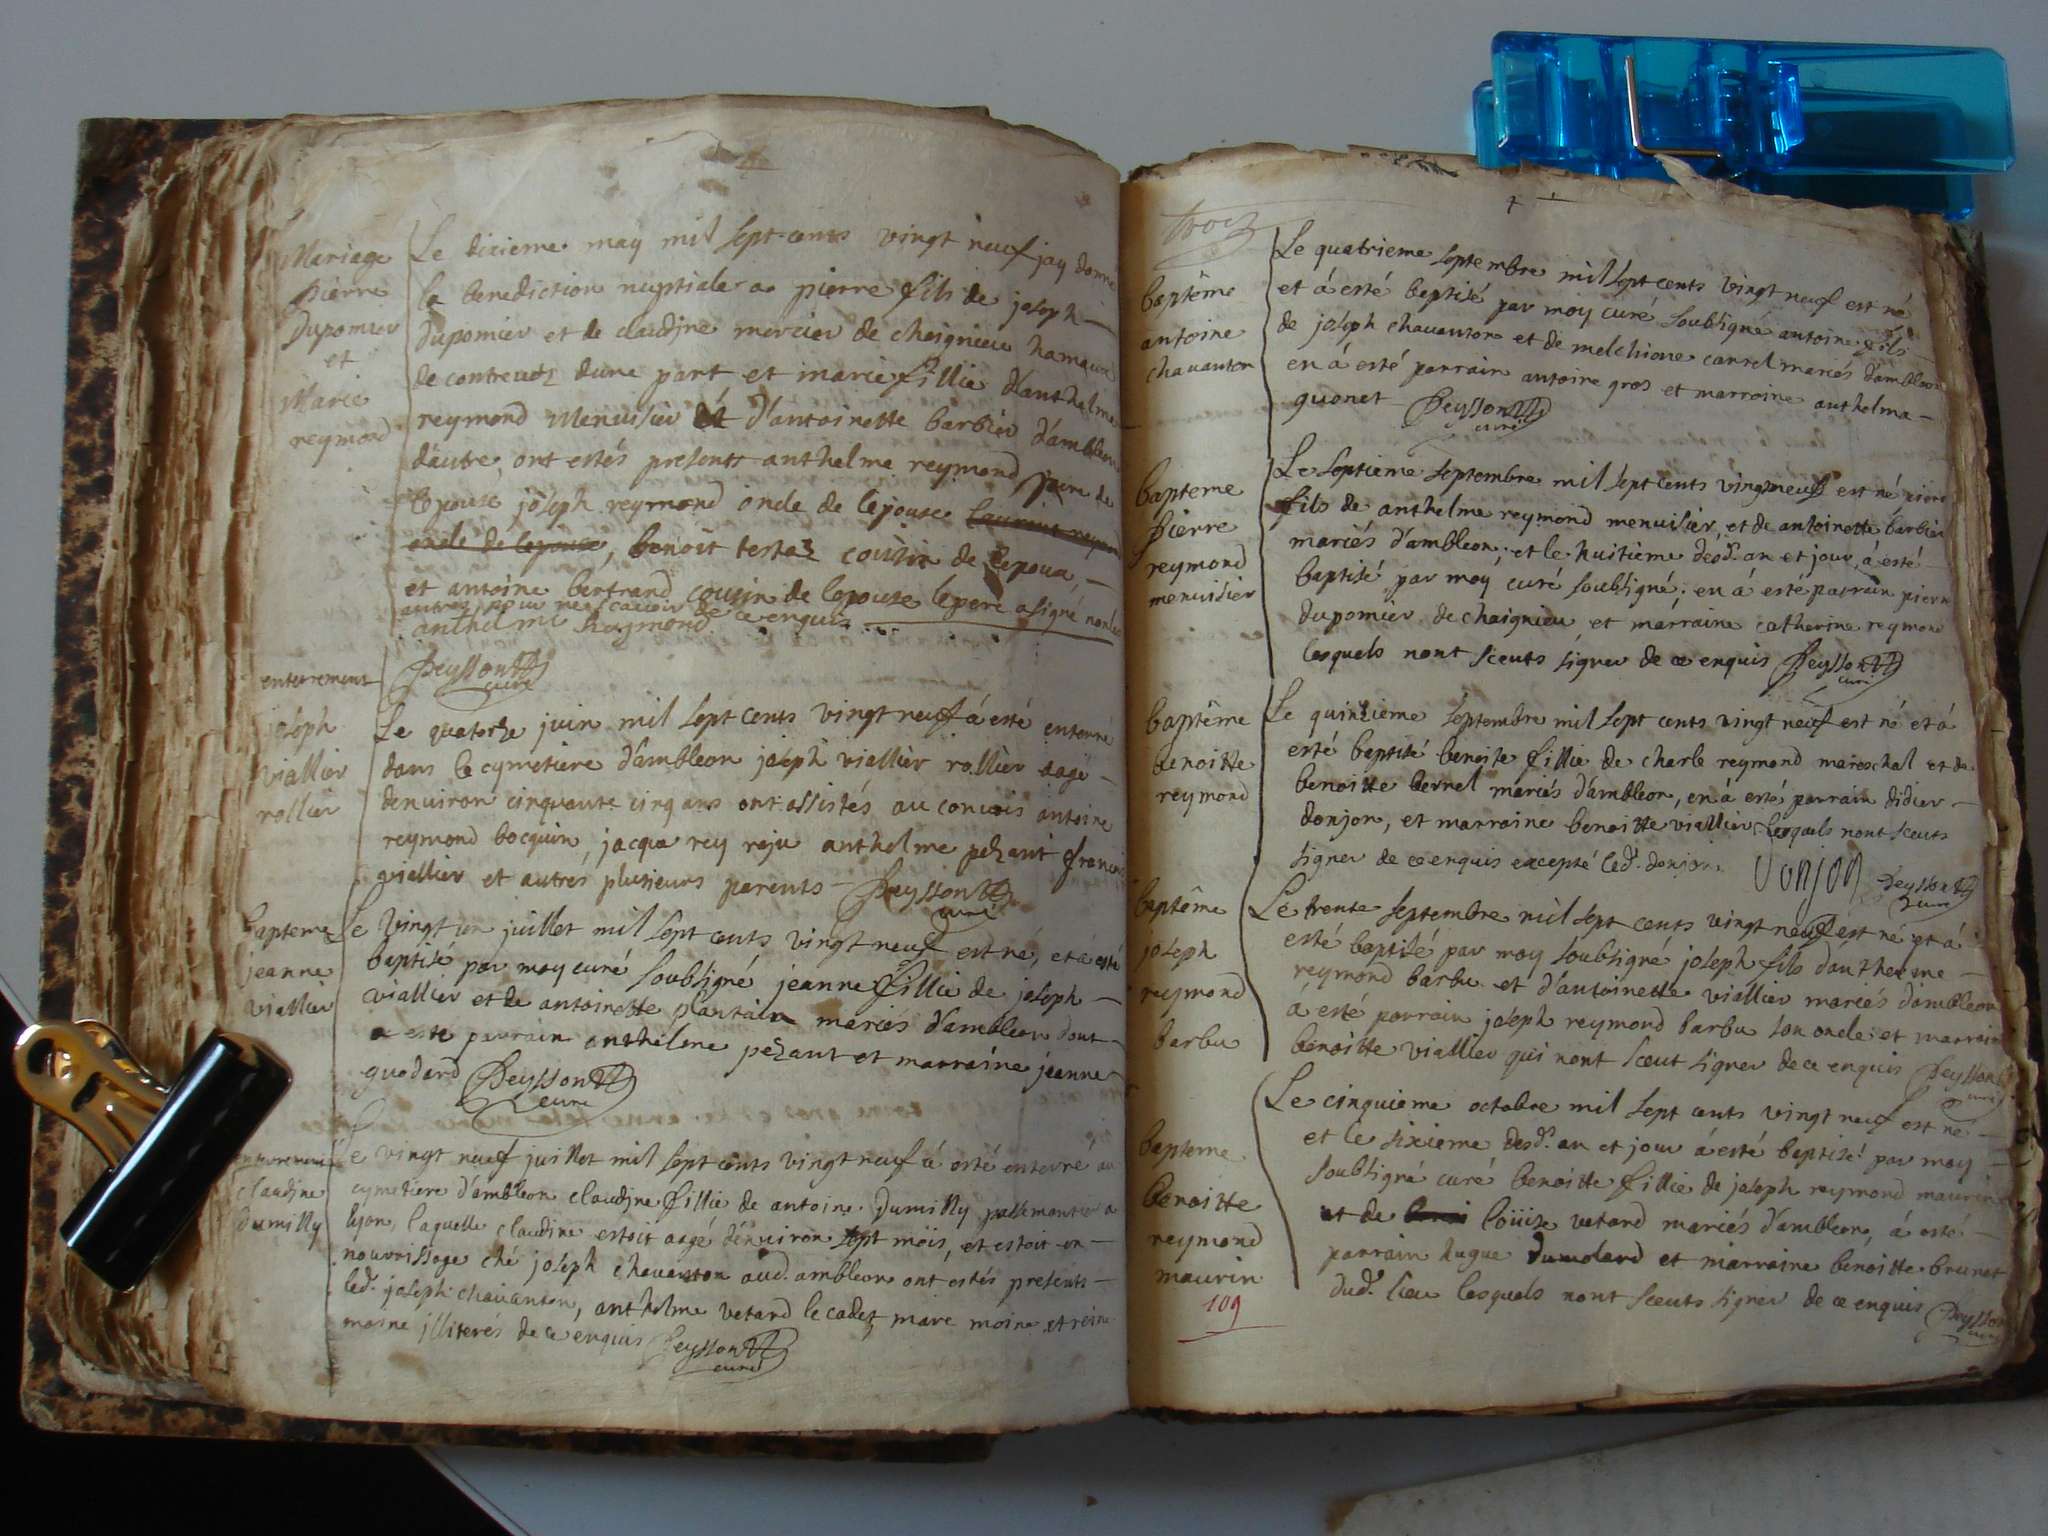 Mariage
pierre
Dupomier
et
Marie
reymond
Le dixieme may mil sept cents vingt neuf jay donné
la benediction nuptiale a pierre fils de joseph
Dupomier et de claudine mercier de chaignieu hamaux
de contreuoz dune part et marie fillie d'anthelme
reymond Menuisier et d'antoinette barbier d'ambleon
dautre, ont estés presents anthelme reymond pere de
lepouse joseph reymond oncle de lepouse
oncle de lepouse, benoit testaz cousin de lepoux,
et antoine bertrand cousin de lepouse le pere a signé non les
autres pour ne scauoir de ce enquis
anthelme Reymond
Peysson
curé
enterrement
joseph
viallier
rollier
Le quatorze juin mil sept cents vingt neuf á esté enterré
dans le cymetiere d'ambleon joseph viallier rollier aagé
denuiron cinquante cinq ans ont assistés au conuois antoine
reymond bocquin, jacque rey raju anthelme pezant francois
viallier et autres plusieurs parents Peysson
curé
bapteme
jeanne
viallier
Le vingt un juillet mil sept cents vingt neuf est né, et á esté
baptisé par moy curé soubsigné jeanne fillie de joseph
viallier et de antoinette plantain mariés d'ambleon dont
a esté parrain anthelme pezant et marraine jeanne
godard Peysson
curé
enterrement
claudine
dumilly
Le vingt neuf juillet mil sept cents vingt neuf á esté enterré au
cymetiere d'ambleon claudine fillie de antoine Dumilly passemantier a
lyon, laquelle claudine estoit aagé dénuiron sept möis, et estoit en
nourrissage ché joseph chauanton aud. ambleon ont estés presents
led. joseph chauanton, anthelme vetard le cadet, marc moine et
moine jlliterés de ce enquis Peysson
curé
trois
baptême
antoine
chauanton
Le quatrieme septembre mil sept cents vingt neuf est né
et á esté baptisé par moy curé soubsigné antoine fils
de joseph chauanton et de melchione carrel mariés d'ambleon
en á esté parrain antoine gros et marraine anthelma
guonet Peysson
curé
bapteme
pierre
reymond
menuisier
Le septieme septembre mil sept cents vingt neuf est né pierre
fils de anthelme reymond menuisier, et de antoinette barbier
mariés d'ambleon; et le huitieme desd. an et jour, á esté
baptisé par moy curé soubsigné; en á esté parrain pierre
dupomier de chaignieu, et marraine catherine reymond
lesquels nont sceuts signer de ce enquis Peysson
curé
baptême
benoitte
reymond
Le quinzieme septembre mil sept cents vingt neuf est né et á
esté baptisé benoite fillie de charle reymond mareschal et de
benoitte bernel mariés d'ambleon, en á esté parrain didier
donjon, et marraine benoitte viallier lesquels nont sceuts
signer de ce enquis excepté led. donjon. Donjon Peysson
curé
baptême
joseph
reymond
barbu
Le trente septembre mil sept cents vingt neuf est né et á
esté baptisé par moy soubsigné joseph fils d'anthelme
reymond barbu et d'antoinette viallier mariés d'ambleon
á esté parrain joseph reymond barbu son oncle et marraine
benoitte viallier qui nont sceut signer de ce enquis Peysson
curé
bapteme
benoitte
reymond
maurin
Le cinquieme octobre mil sept cents vingt neuf est né
et le sixieme desd. an et jour á esté baptisé par moy
soubsigné curé benoitte fillie de joseph reymond maurin
et de loüise vetard mariés d'ambleon, á esté
parrain hugue dumolard et marraine benoitte brunet
dud. lieu lesquels nont sceuts signer de ce enquis Peysson
curé
109